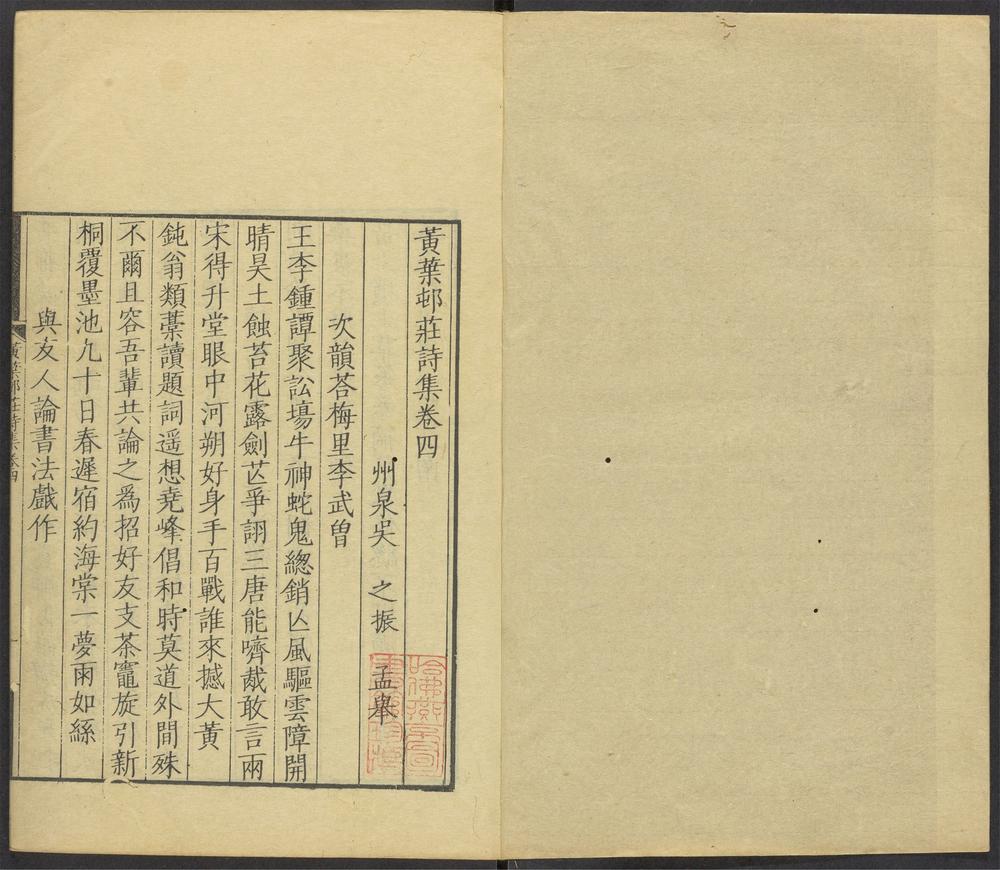 黃葉邨莊詩集卷四
州泉吳 之振 孟舉
次韻荅梅里李武曾
王李鍾譚聚訟場牛神蛇鬼總銷亾風驅雲障開
晴昊土蝕苔花露劍芒爭詡三唐能嚌胾敢言兩
宋得升堂眼中河朔好身手百戰誰來撼大黃
鈍翁類藁讀題詞遥想堯峰倡和時莫道外間殊
不爾且容吾輩共論之爲招好友支茶竈旋引新
桐覆墨池九十日春遲宿約海棠一夢雨如絲
與友人論書法戲作
黃葉邨莊詩集卷四
一
哈佛燕京圖
書館珍藏